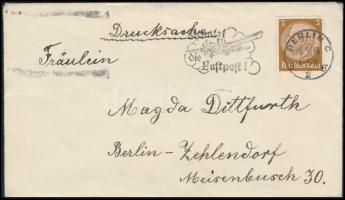 Drucksache
die Luftpost!
3
BERLIN C
2
Deutsches Reich
Fräulein
Magda Dittfurth
Berlin-Zehlendorf
Meisenbusch 30.